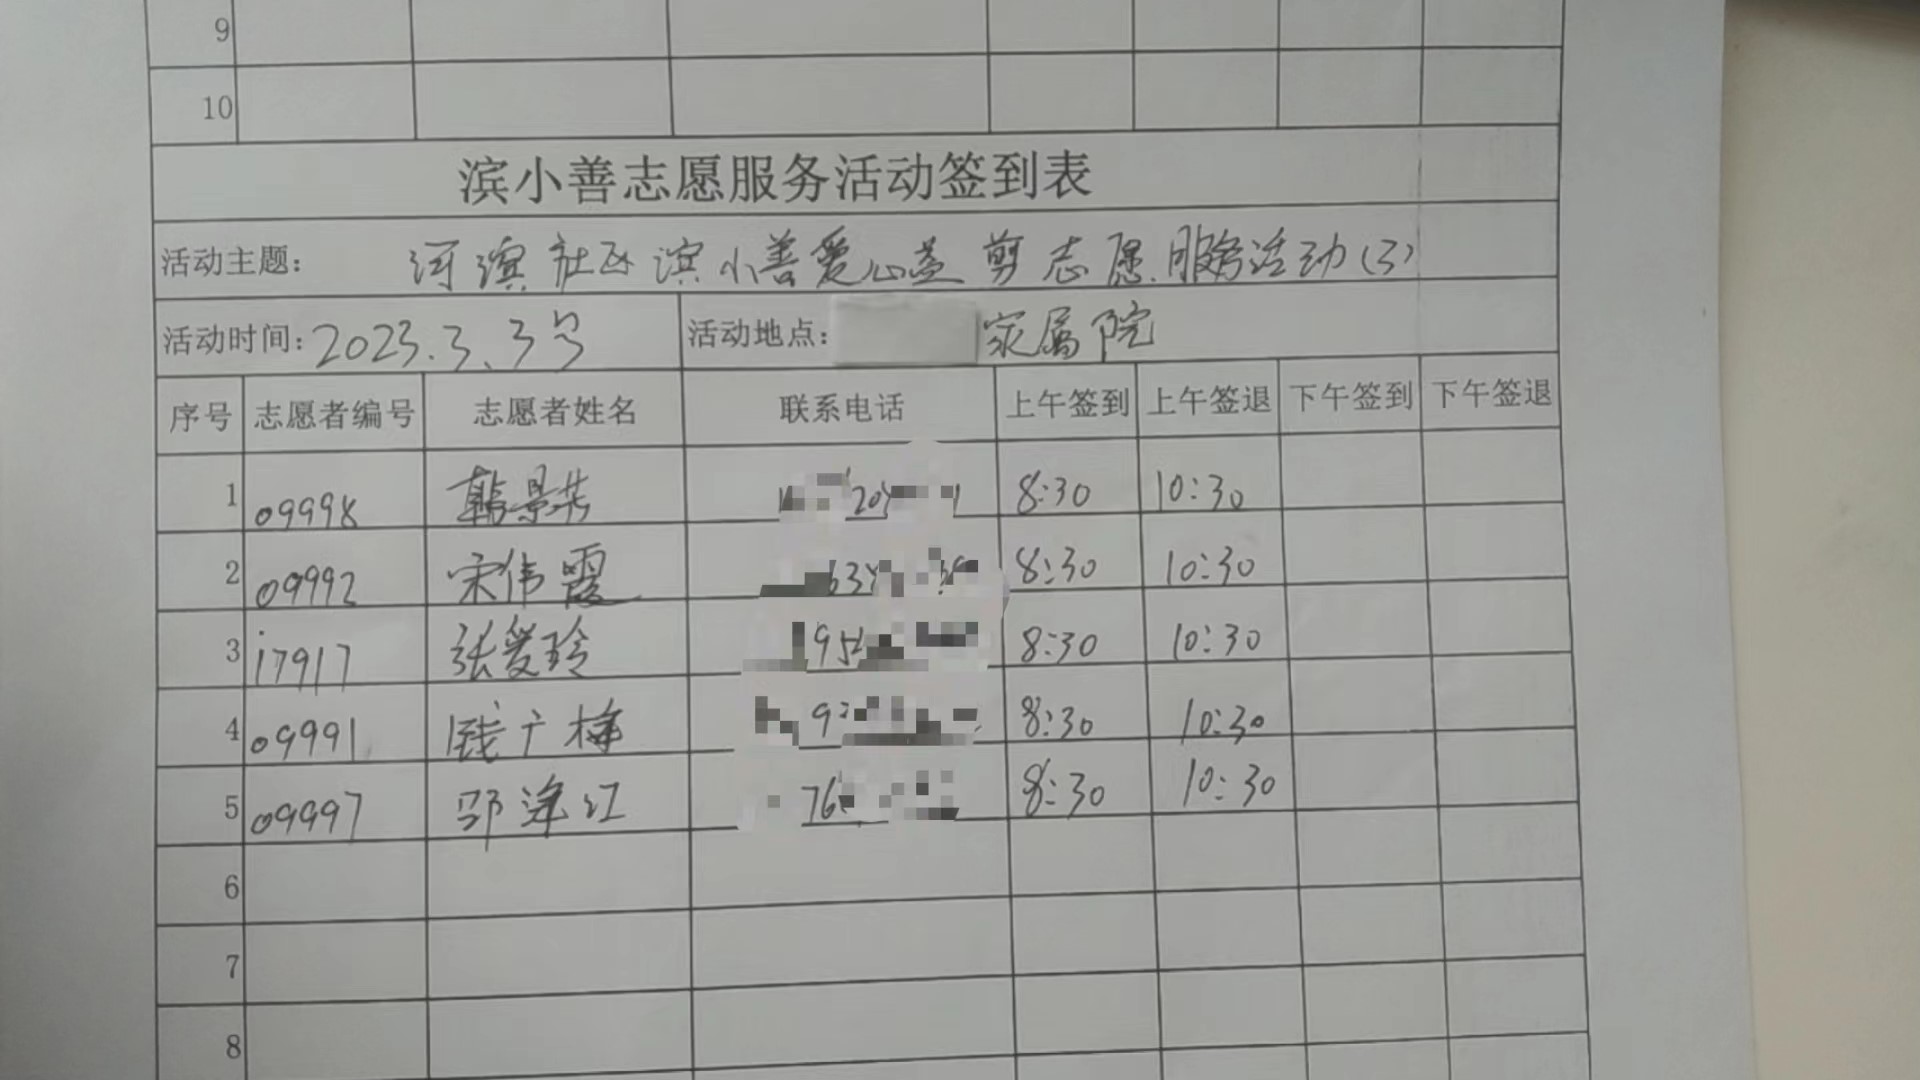 9
10
滨小善志愿服务活动签到表
活动主题: 河滨社区滨小善爱心益剪志愿服务活动(3)
活动时间: 2023.3.3号 活动地点: 家属院
序号 志愿者编号 志愿者姓名 联系电话 上午签到 上午签退 下午签到 下午签退
1 09998 韩景芳 8:30 10:30
2 09992 宋伟霞 8:30 10:30
3 17917 张爱玲 8:30 10:30
4 09991 钱广梅 8:30 10:30
5 09997 邵 江 8:30 10:30
6
7
8